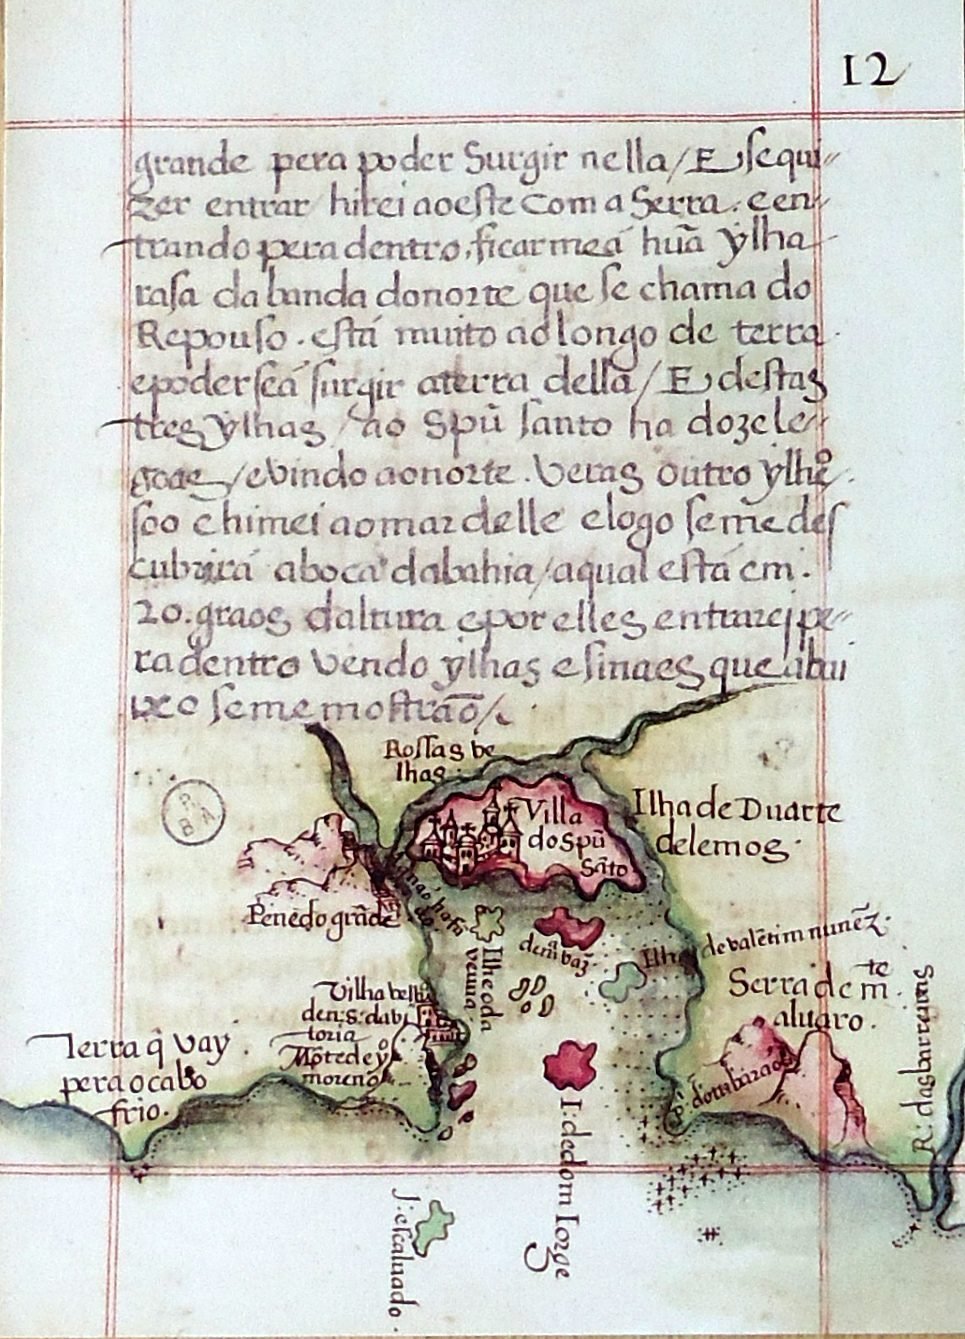 12
grande pera poder Surgir nella/ E sequi
zer entrar hirei aoeste com a Serra. e en
trando pera dentro, ficarmeá huã ylha
rasa da banda donorte que se chama do
Repouso. está muito ao longo de terra
epodersêá surgir aterra della/ E destas
tres ylhas/ ao Spũ sãnto ha doze le
goas/ evindo aonorte. Veras outro ylhe
seo e himei aomar delle elogo seme des
cubrirá aboca dabahia/ aqual está em.
20. graos daltura epor elles entrarei pe
radentro vendo ylhas esinaes que abai
xo seme mostrão/.
Rossas ve
lhas
RBA
Villa
do Spũ
Sãto
Ilha de Duarte
delemos.
Penedo grãde
demã vaz
Ilheoda
veuua
Ilha de valẽtim nunẽz.
Serra de m̃. te
aluaro.
Vilha velha
den: s: da vi
toria
Mõte de yº
moreno
Terra q̃ vay
pera o cabo
frio.
pº: do tubarão
R: das barreiras
I: de dom Iorge
J: escaluado.